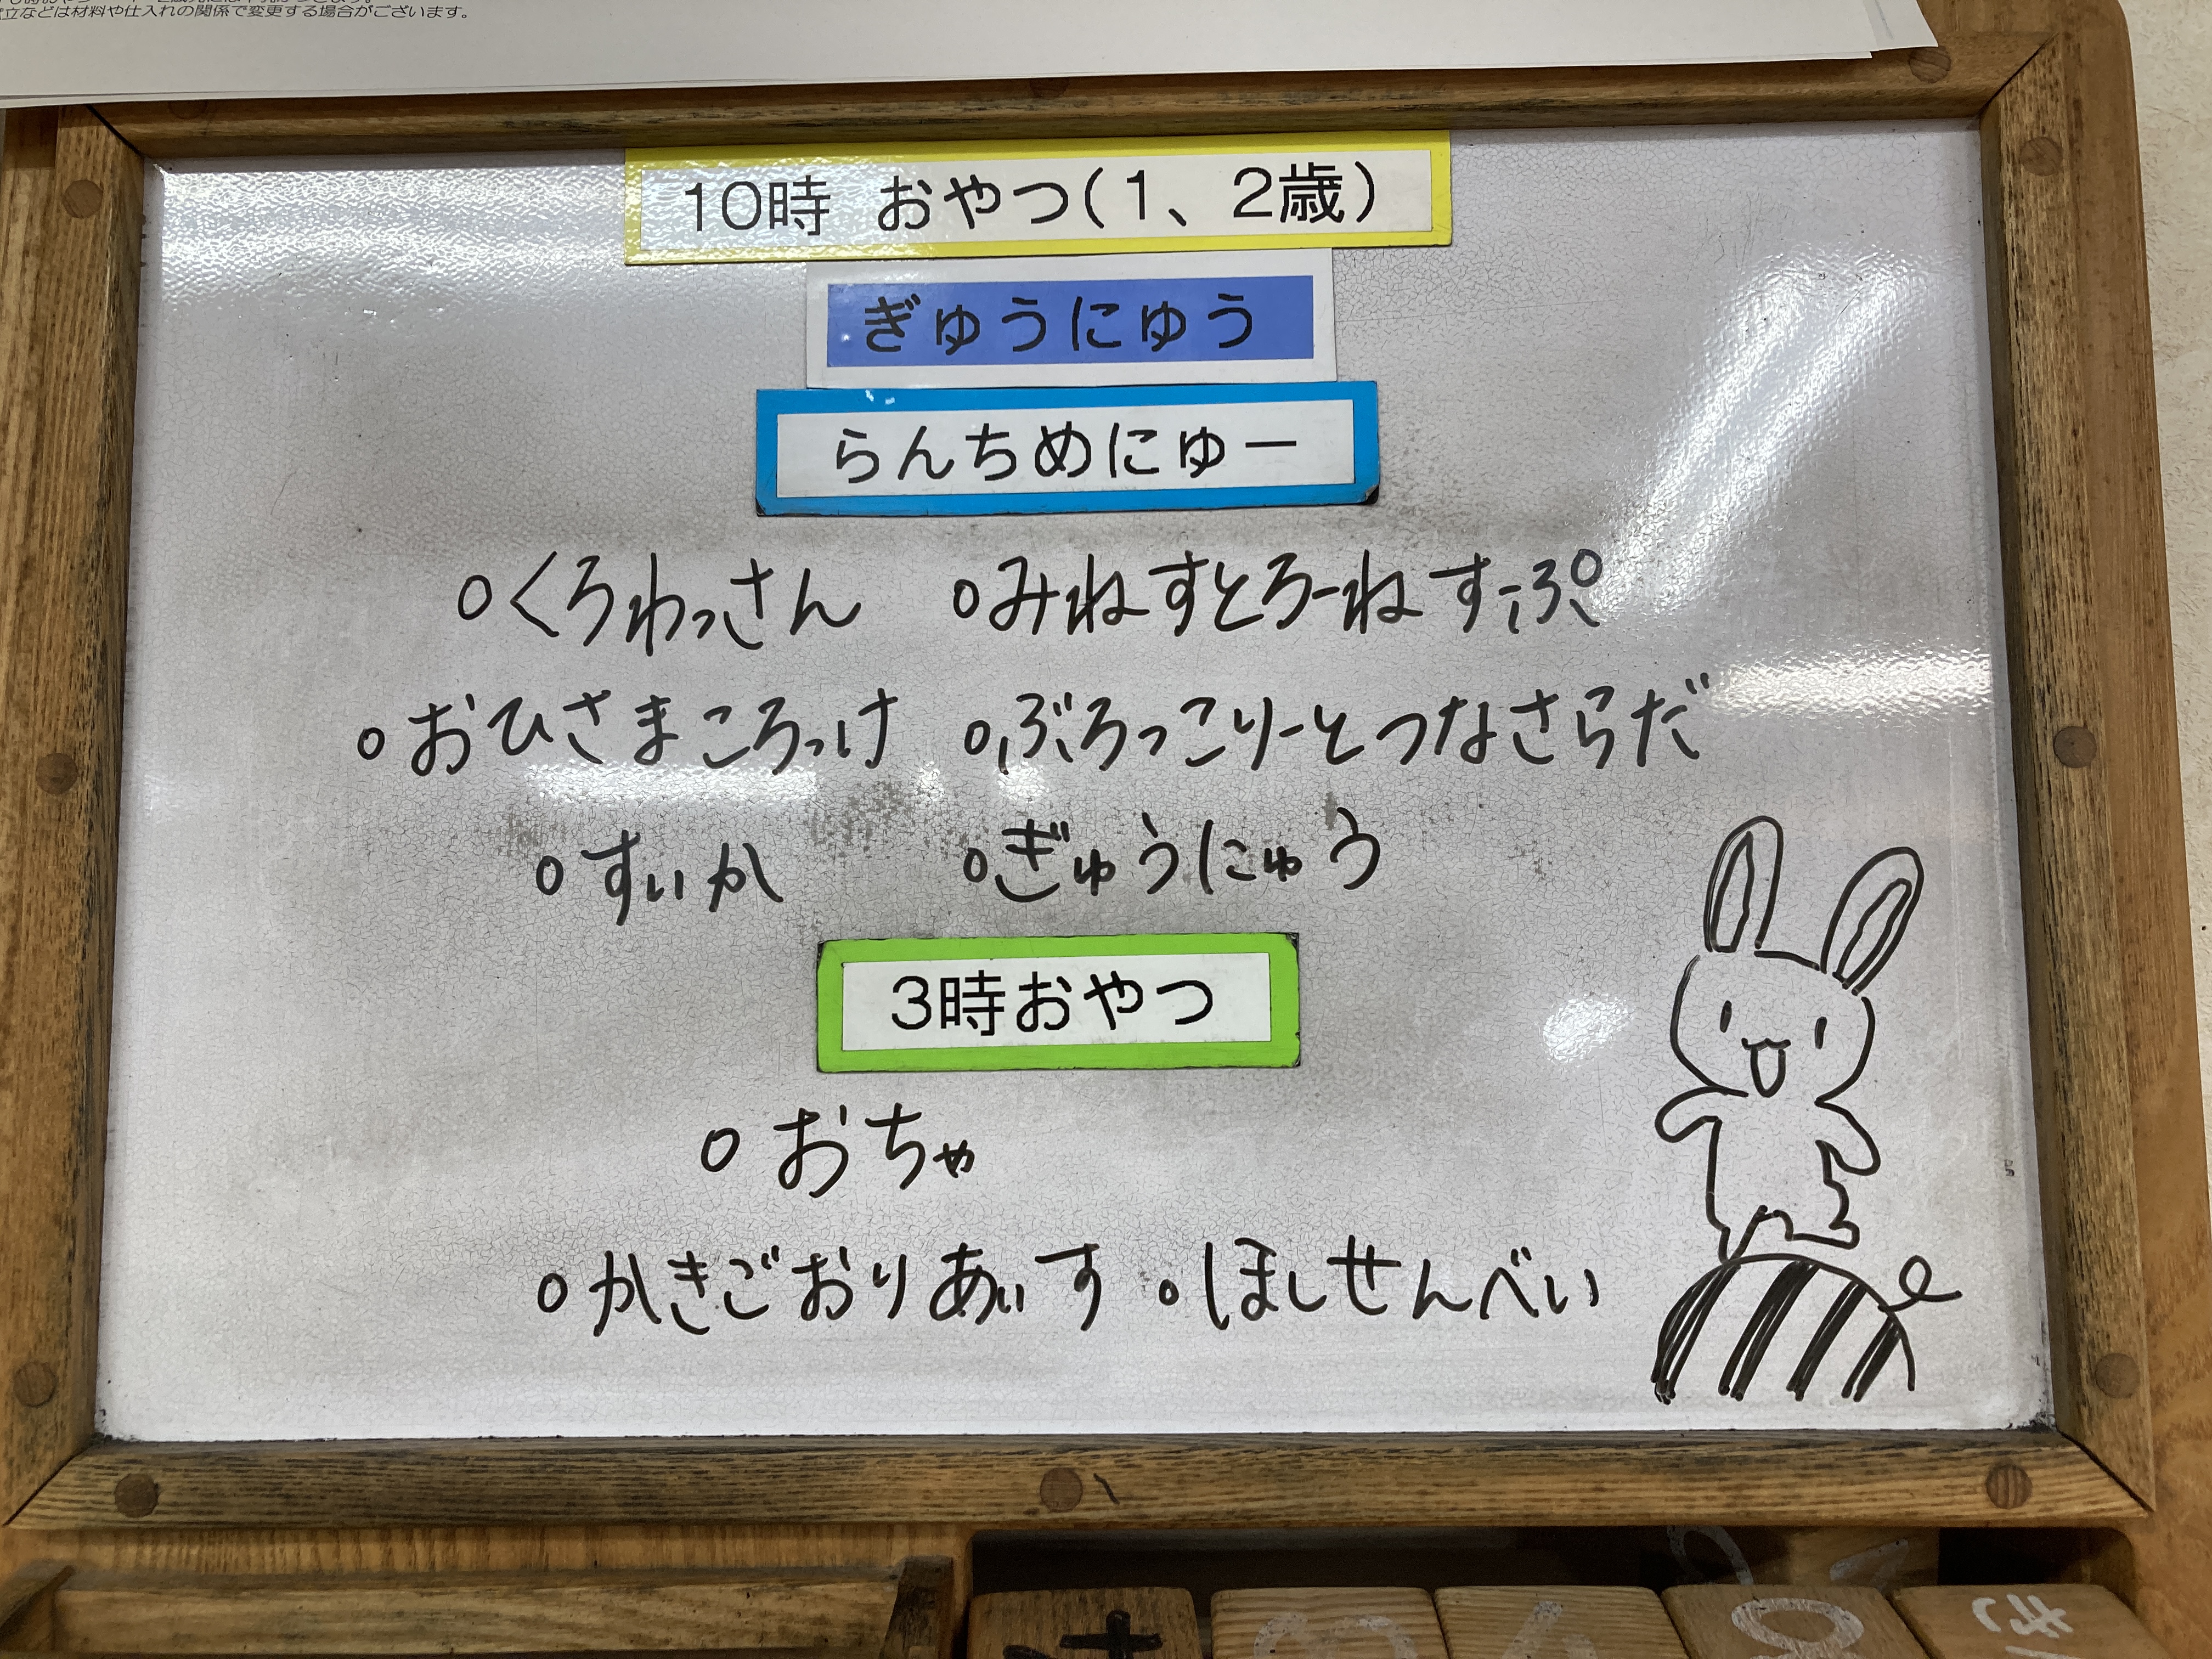 立などは材料や仕入れの関係で変更する場合がございます。
10時 おやつ(1、2歳)
ぎゅうにゅう
らんちめにゅー
○くろわっさん ○みねすとろーねすーぷ
○おひさまころっけ ○ぶろっこりーとつなさらだ
○すいか ○ぎゅうにゅう
3時おやつ
○おちゃ
○かきごおりあいす ○ほしせんべい